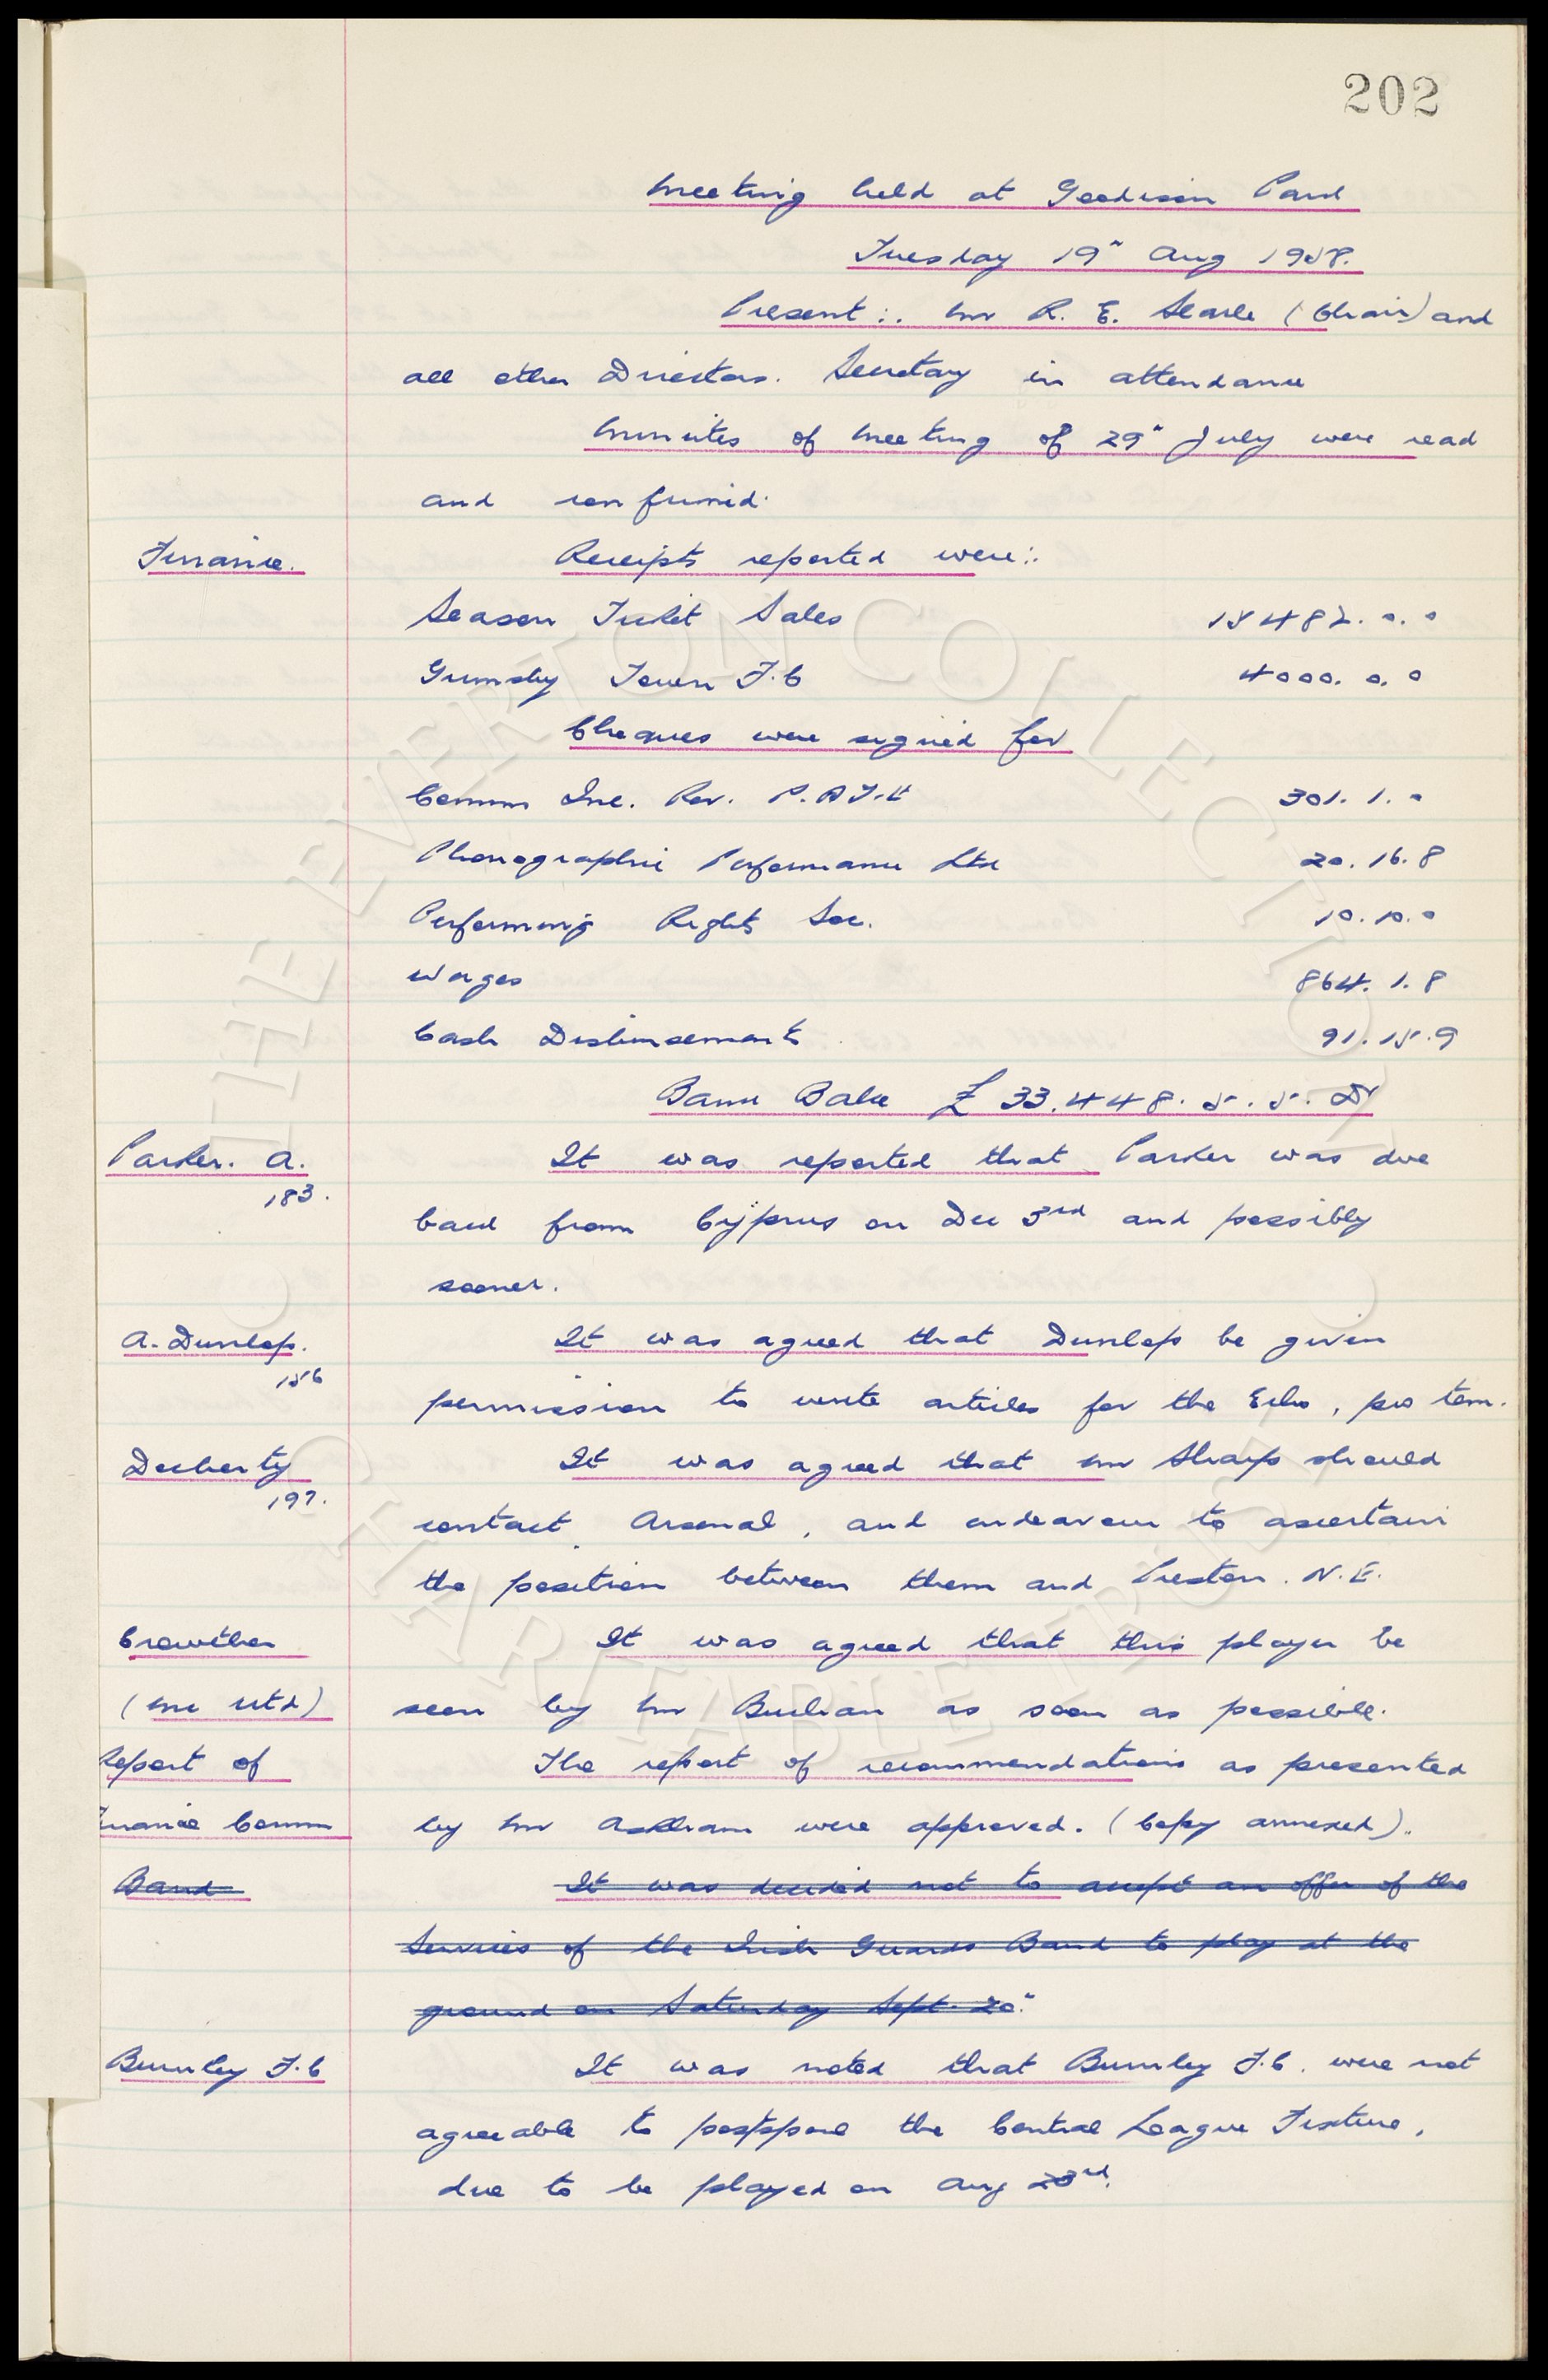 202
Meeting held at Goodison Park
Tuesday 19" Aug 1958.
Present:. Mr R. E. Searle (Chair) and
all other Directors. Secretary in attendance
Minutes of Meeting of 29" July were read
and confirmed.
Finance. Receipts reported were:.
Season Ticket Sales 15482. 0. 0
Grimsby Town F.C 4000. 0. 0
Cheques were signed for
Comm Inc. Rev. P.A.Y.E 301. 1. 0
Phonographic Performance Ltd 20. 16. 8
Performing Rights Soc. 10. 10. 0
Wages 864. 1. 8
Cash Disbursements 91. 15. 9
Bank Balce £33.448. 5. 5. Dr
Parker. A. It was reported that Parker was due
183.
back from Cyprus on Dec 3rd and possibly
sooner.
A. Dunlop. It was agreed that Dunlop be given
156
permission to write articles for the Echo, pro tem.
Docherty It was agreed that Mr Sharp should
197.
contact Arsenal, and endeavour to ascertain
the position between them and Preston. N.E.
Crowther It was agreed that this player be
(Mc Utd) seen by Mr Buchan as soon as possible.
Report of The report of recommendations as presented
Finance Comm by Mr Askham were approved. (Copy annexed).
Band It was decided not to accept an offer of the
Services of the Irish Guards Band to play at the
ground on Saturday Sept. 20".
Burnley F.C It was noted that Burnley F.C. were not
agreeable to postpone the Central League Fixture,
due to be played on Aug 23rd.
THE EVERTON COLLECTION
CHARITABLE TRUST